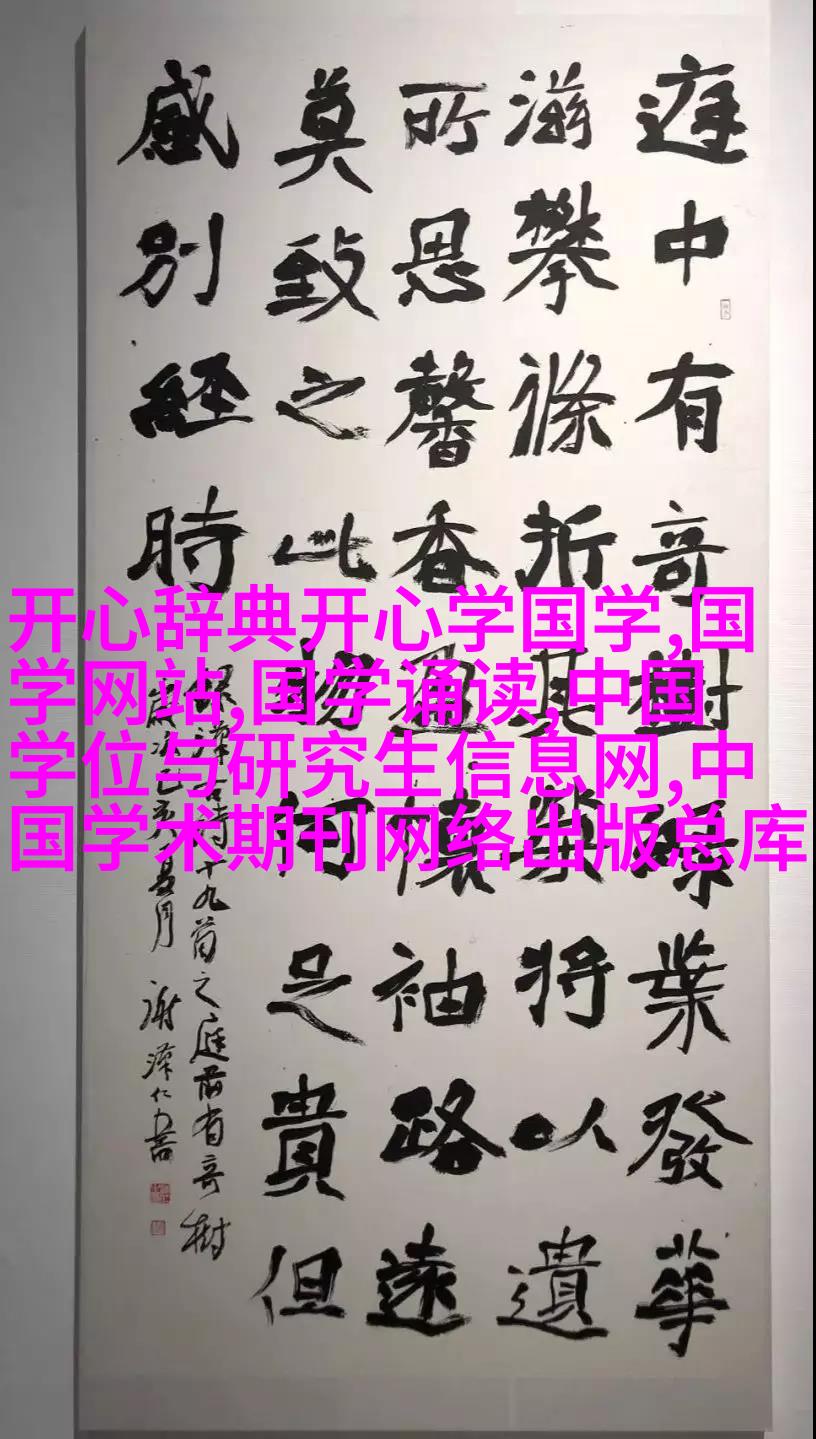 开心辞典开心学国学,国
学网站,国学诵读,中国
学位与研究生信息网,中
国学术期刊网络出版总库
庭中有奇樹綠葉發華
滋攀條折其榮將以遺
所思馨香盈懷袖路遠
莫致之此物何足貴但
感別經時
詩十九首之庭前有奇樹
夏月 謝澤仁書